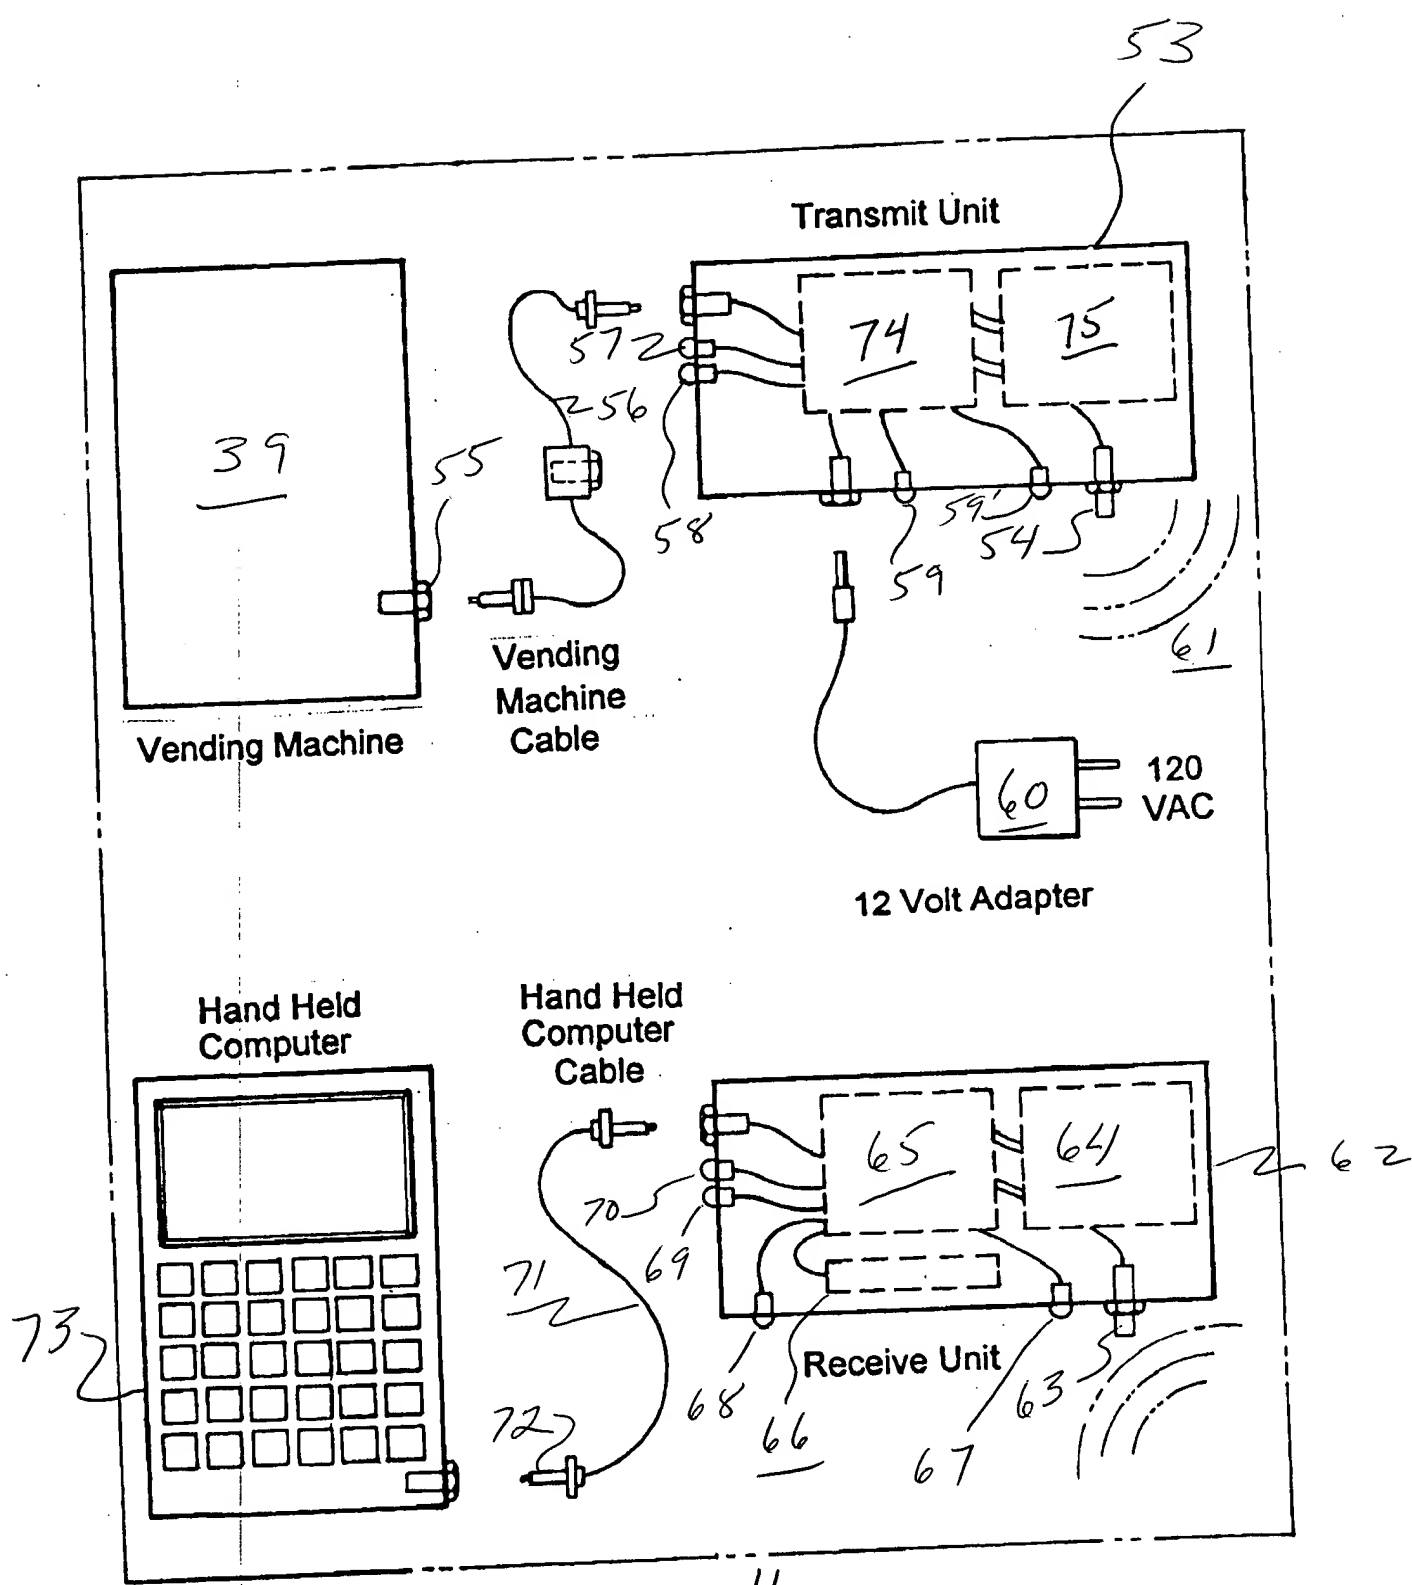 53
Transmit Unit
57
74
75
56
39
55
58
59'
54
59
61
Vending
Machine
Cable
Vending Machine
60
120
VAC
12 Volt Adapter
Hand Held
Computer
Hand Held
Computer
Cable
65
64
62
70
69
71
73
Receive Unit
68
66
67
63
72